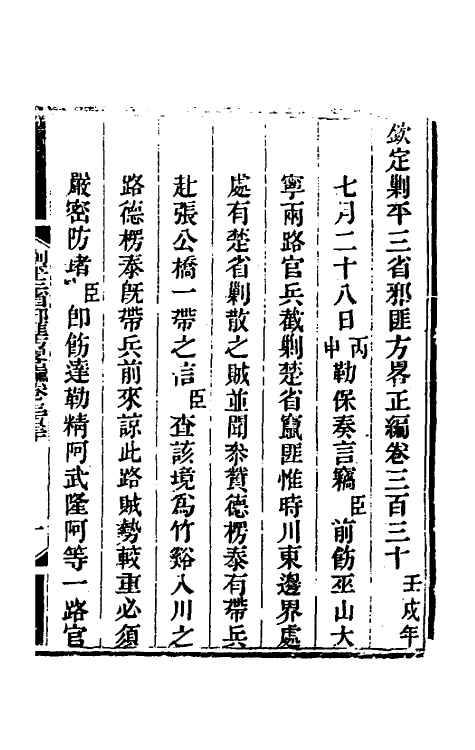 欽定剿平三省邪匪方畧正編卷三百三十 壬戌年
七月二十八日丙申勒保奏言竊臣前飭巫山大
寧兩路官兵截剿楚省竄匪惟時川東邊界處
處有楚省剿散之賊並聞叅贊德楞泰有帶兵
赴張公橋一帶之信臣查該境爲竹谿入川之
路德楞泰既帶兵前來諒此路賊勢較重必須
嚴密防堵臣卽飭達勒精阿武隆阿等一路官